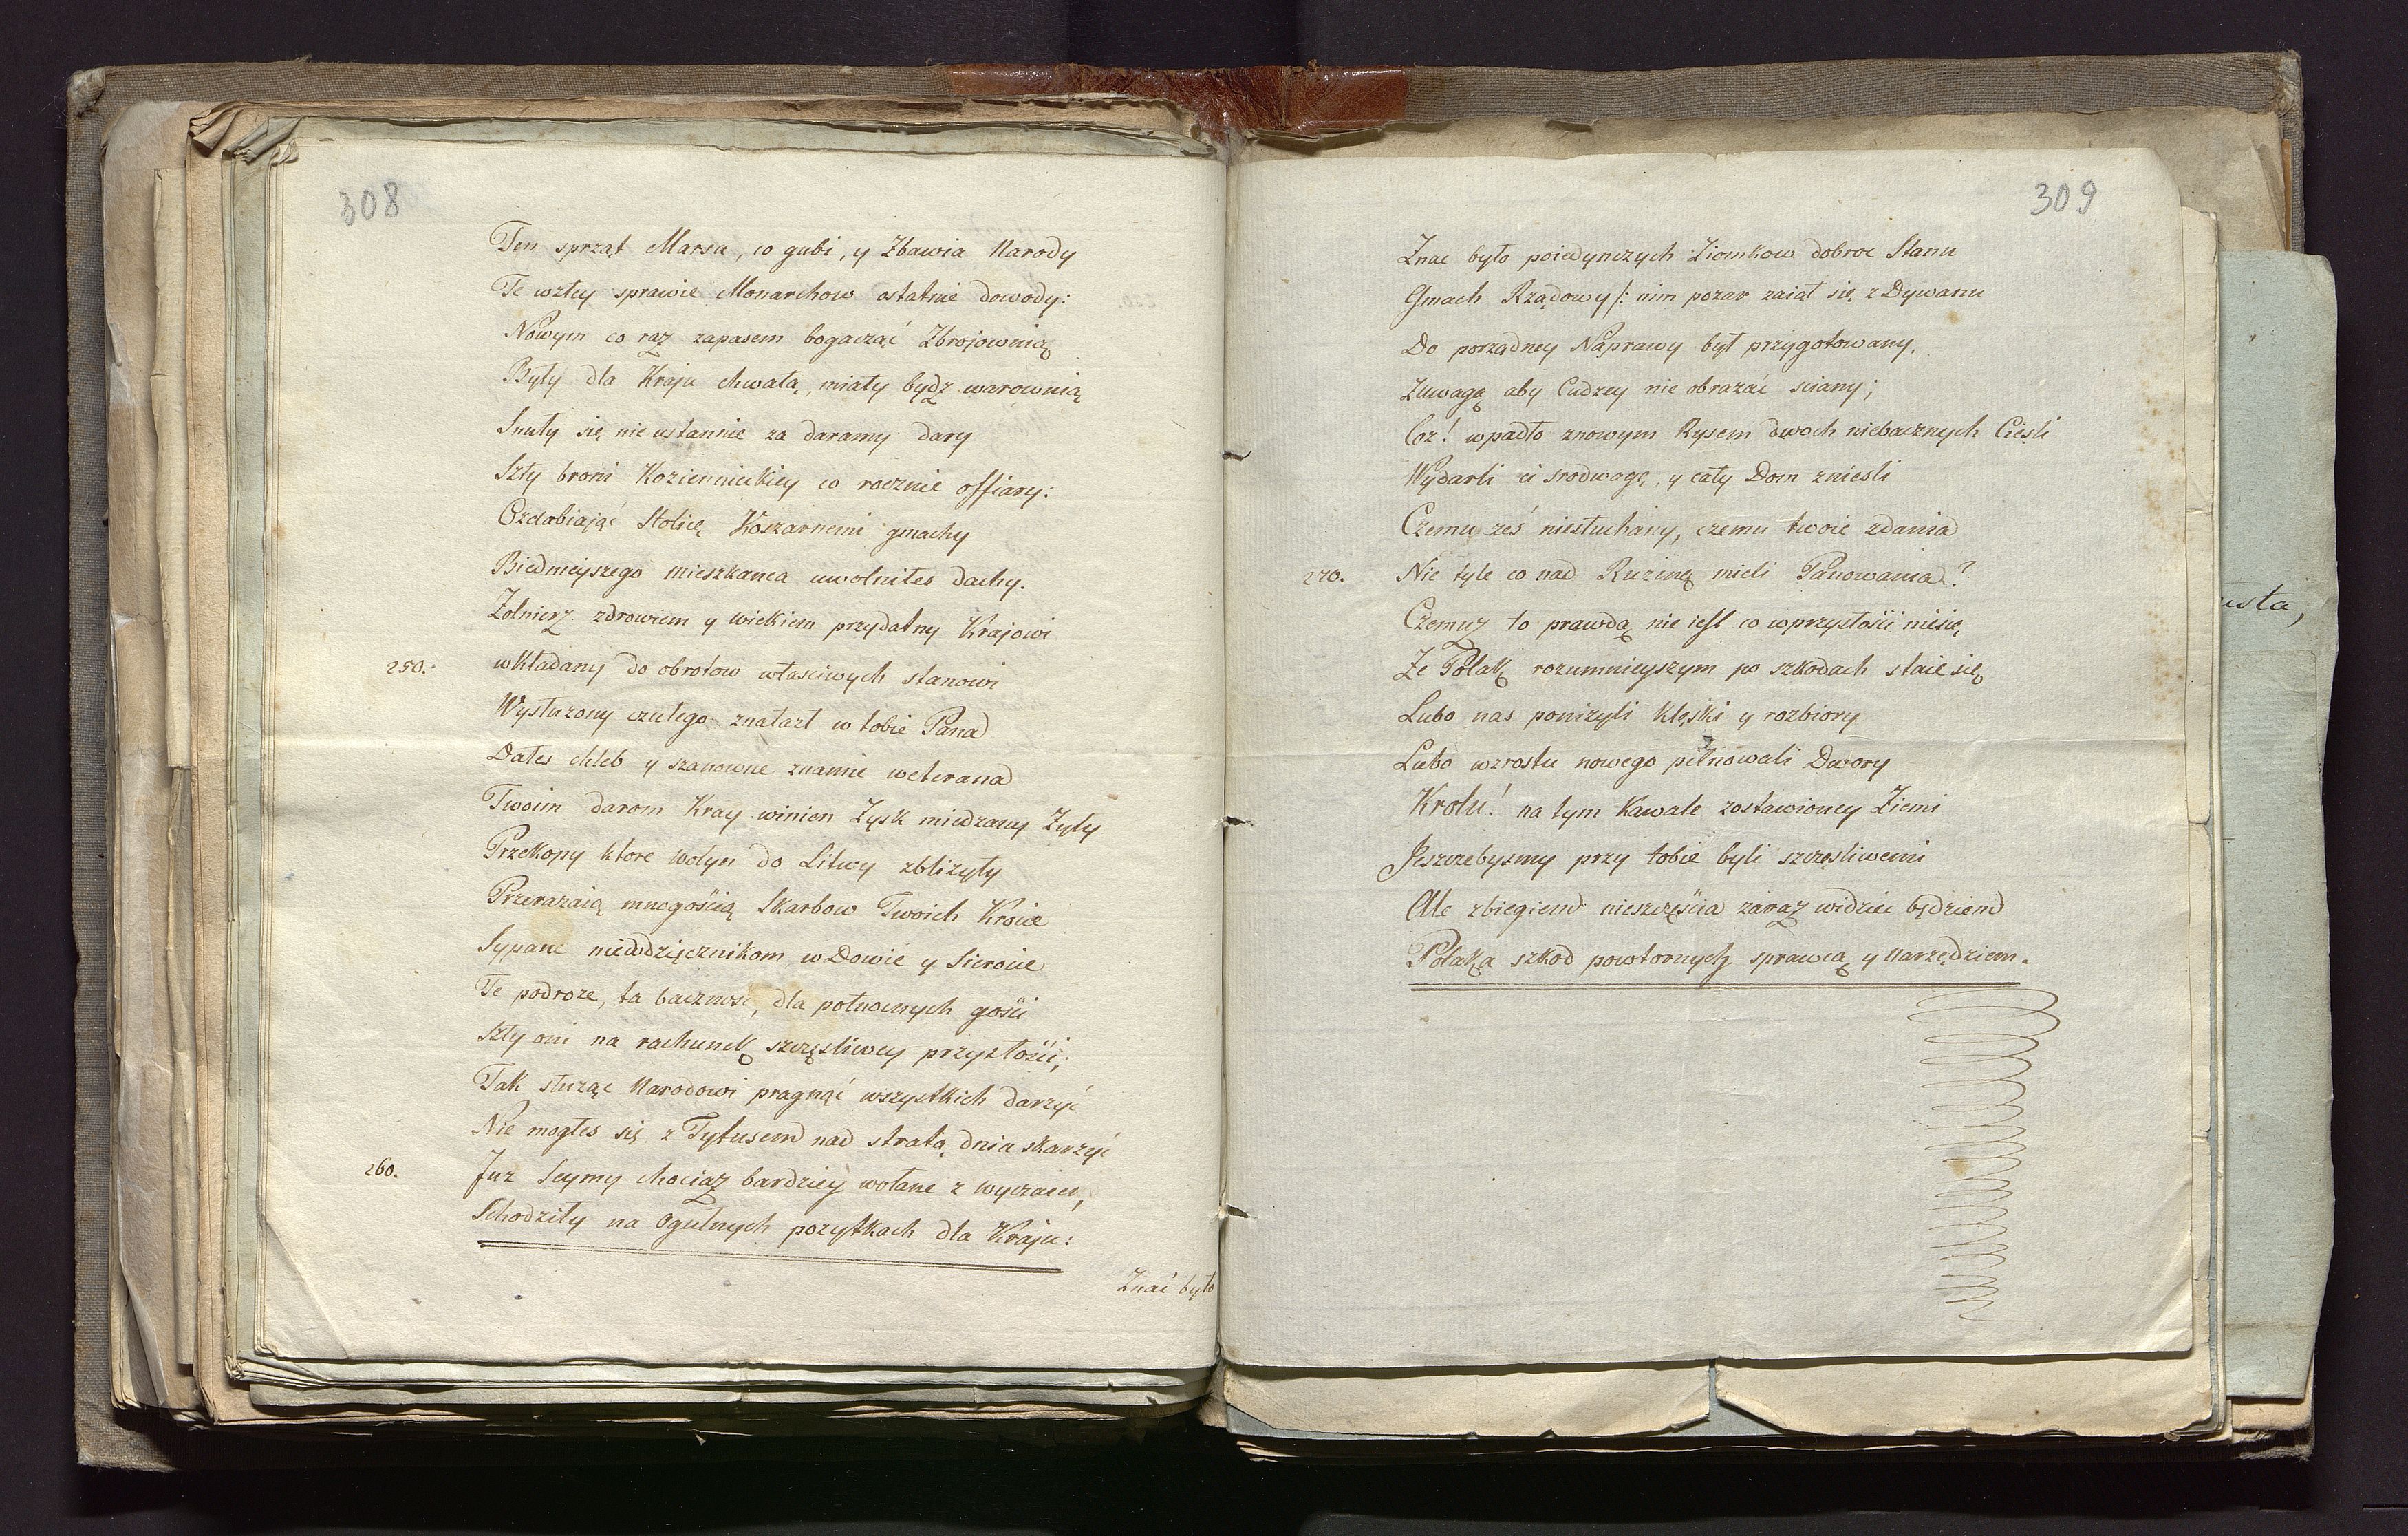 308
Ten sprząt Marsa, co gubi, y Zbawia Narody
Te wzłey sprawie Monarchow ostatnie dowody:
Nowym co raz zapasem bogacząć Zbrojownią
Były dla Kraju chwałą, miały bydz warownią
Snuły się nie ustannie za daramy dary
Szły broni Kozienieckiey co rocznie offiary:
Ozdabiająć Stolicę Koszarnemi gmachy
Biednieyszego mieszkanca uwolniłes dachy.
Zołnierz zdrowiem y wiekiem przydatny Krajowi
250. wkładany do obrotow własciwych stanowi
Wysłużony czułego znalazł w tobie Pana
Dałes chleb y szanowne znamie weterana
Twoim darom Kray winien Zysk miedzany Zyły
Przekopy ktore wołyn do Litwy zbliżyły
Przerazaią mnogośćią Skarbow Twoich Krocie
Sypane niewdzięcznikom, wDowie y Sierocie
Te podroze, ta bacznosc, dla połnocnych gośći
Szły oni na rachunek szczęsliwey przyszłośći;
Tak słuząc Narodowi pragnąć wszystkich darzyć
Nie mogłes się z Tytusem nad stratą dnia skarzyć
260. Juz Seymy chociaz bardziey wołane z wyczaiu,
Schodziły na Ogulnych pozytkach dla Kraju:
Znać było
309
Znac było poiedynczych Ziomkow dobroc Stanu
Gmach Rządowy /: nim pozar zaiął się z Dywanu
Do porządney Naprawy był przygotowany,
Zuwagą aby Cudzey nie obrazać sciany;
Coz! wpadło znowym Rysem dwoch niebacznych Cieśli
Wydarli ci srodwagę, y cały Dom zniesli
Czemu ześ niesłuchany, czemu twoie zdania
270. Nie tyle co nad Ruziną mieli Panowania?
Czemuz to prawdą nie iest co wprzysłośći niesię
Ze Polak rozumnieyszym po szkodach staie się
Lubo nas ponizyli klęski y rozbiory
Lubo wzrostu nowego pilnowali Dwory
Krolu! na tym Kawale zostawioney Ziemi
Jeszczebysmy przy tobie byli szczęsliwemi
Ale zbiegiem nieszczęśćia zaraz widziec będziem
Polaka szkod powtornych sprawcą y narzędziem.